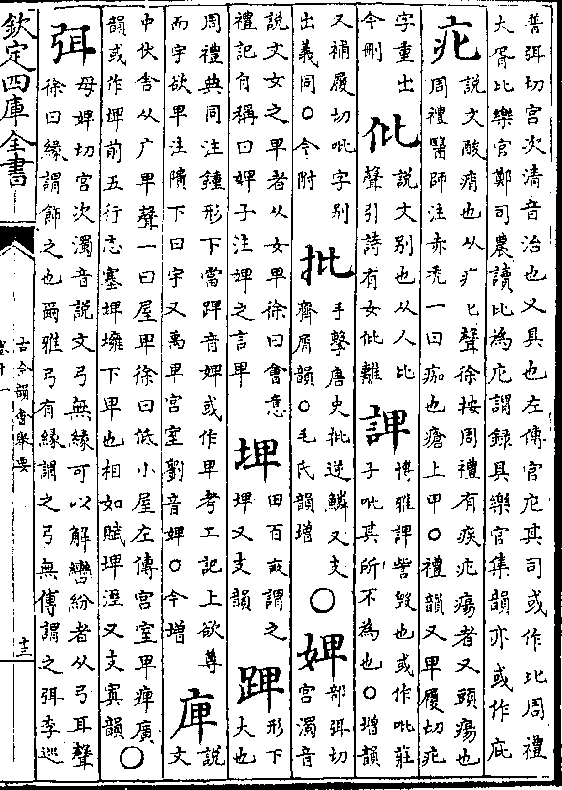 善弭切宫次清音治也又具也左傳官庀其司或作比周禮
大胥比樂官鄭司農讀比為庀謂録具樂官集韻亦或作庇
疕
說文酸痟也从疒匕聲徐按周禮有疾疕瘍者又頭瘍也
周禮醫師注亦禿一曰痂也瘡上甲○禮韻又卑履切疕
字重出
今刪
仳
說文别也从人比
聲引詩有女仳離
諀
博雅諀訾毁也或作吡莊
子吡其所不為也○增韻
又補履切吡字别
出義同○今附
批
手擊唐史批逆鱗又支
齊屑韻○毛氏韻增
○婢
部弭切
宫濁音
說文女之卑者从女卑徐曰會意
禮記自稱曰婢子注婢之言卑
埤
田百畝謂之
埤又支韻
䠋
形下
大也
周禮典同注鍾形下當䠋音婢或作卑考工記上欲尊
而宇欲卑注隤下曰宇又禹卑宫室劉音婢○今增
庳
說
文
中伏舍从广卑聲一曰屋卑徐曰低小屋左傳宫室卑庳廣
韻或作埤前五行志塞埤擁下卑也相如賦埤溼又支寘韻
○
弭
母婢切宫次濁音說文弓無緣可以解轡紛者从弓耳聲
徐曰緣謂飾之也爾雅弓有緣謂之弓無傳謂之弭李巡
欽定四庫全書
古今韻會舉要
卷十一
十三